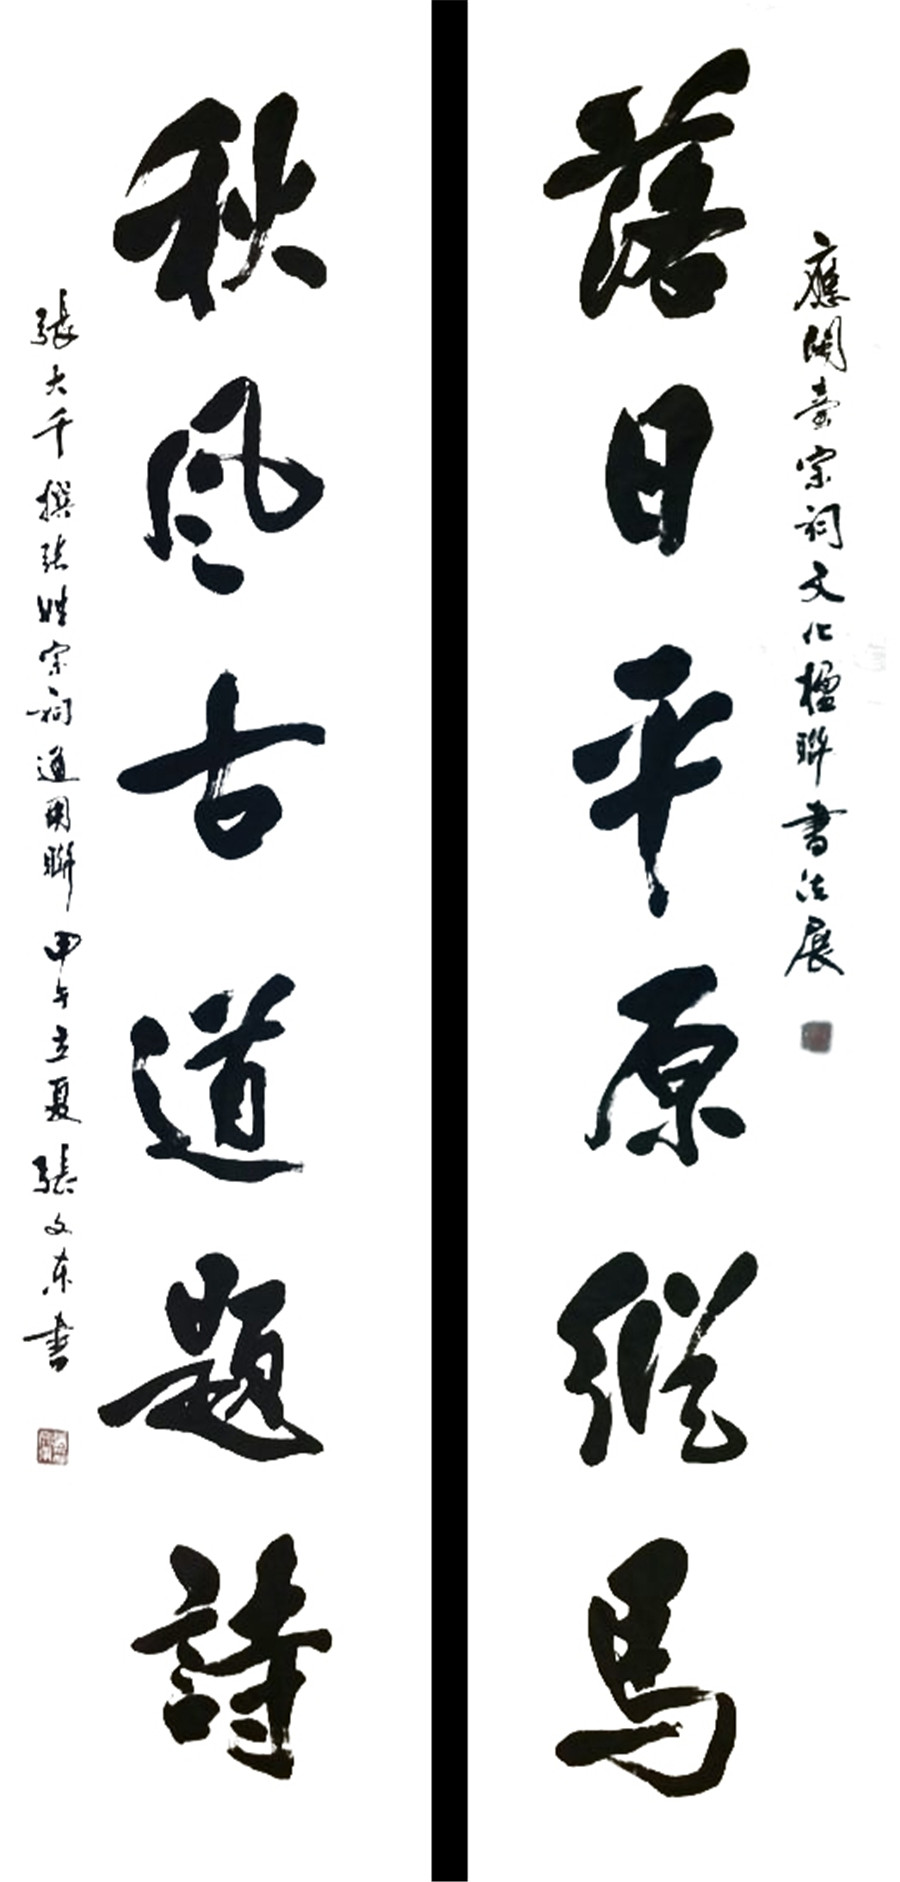 應開臺宗祠文化楹聯書法展
落日平原縱馬
秋风古道題詩
張大千撰张姓宗祠通用聯甲午立夏張文东書